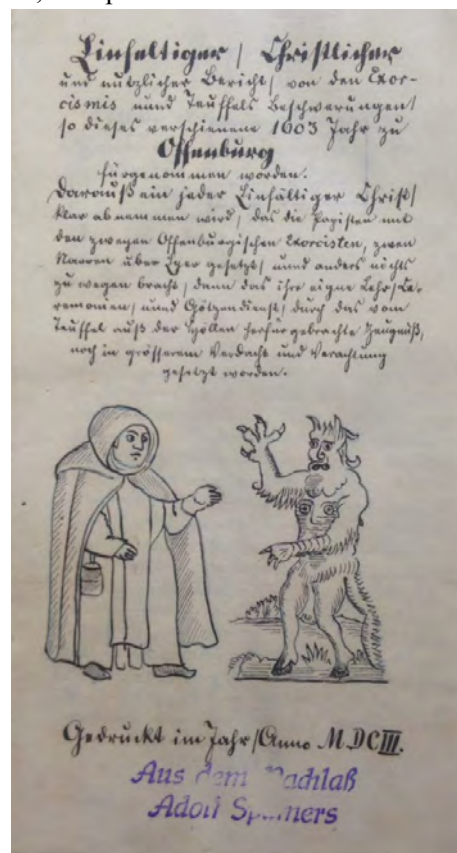 Einfaltiger / Christlicher
und nutzlicher Bericht / von den Exor-
cismis unnd Teuffels beschwerungen /
so dieses verschienene 1603 Jahr zu
Offenburg
fürgenommen worden.
Darauß ein jeder Einfältiger Christ /
klar abnemmen wird / das die Papisten mit
den zweyen Offenburgischen Exorcisten, zween
Narren über Eyer gesetzt / unnd anders nichts
zu wegen bracht / dann das ihr eigne Lehr / Ce-
remonien / unnd Götzendienst / durch das vom
Teuffel auß der Höllen herfür gebrachte Zeugnuß,
noch in grösserem Verdacht und Verachtung
gesetzt worden.
Gedruckt im Jahr / Anno MDCIII.
Aus dem Nachlaß
Adolf